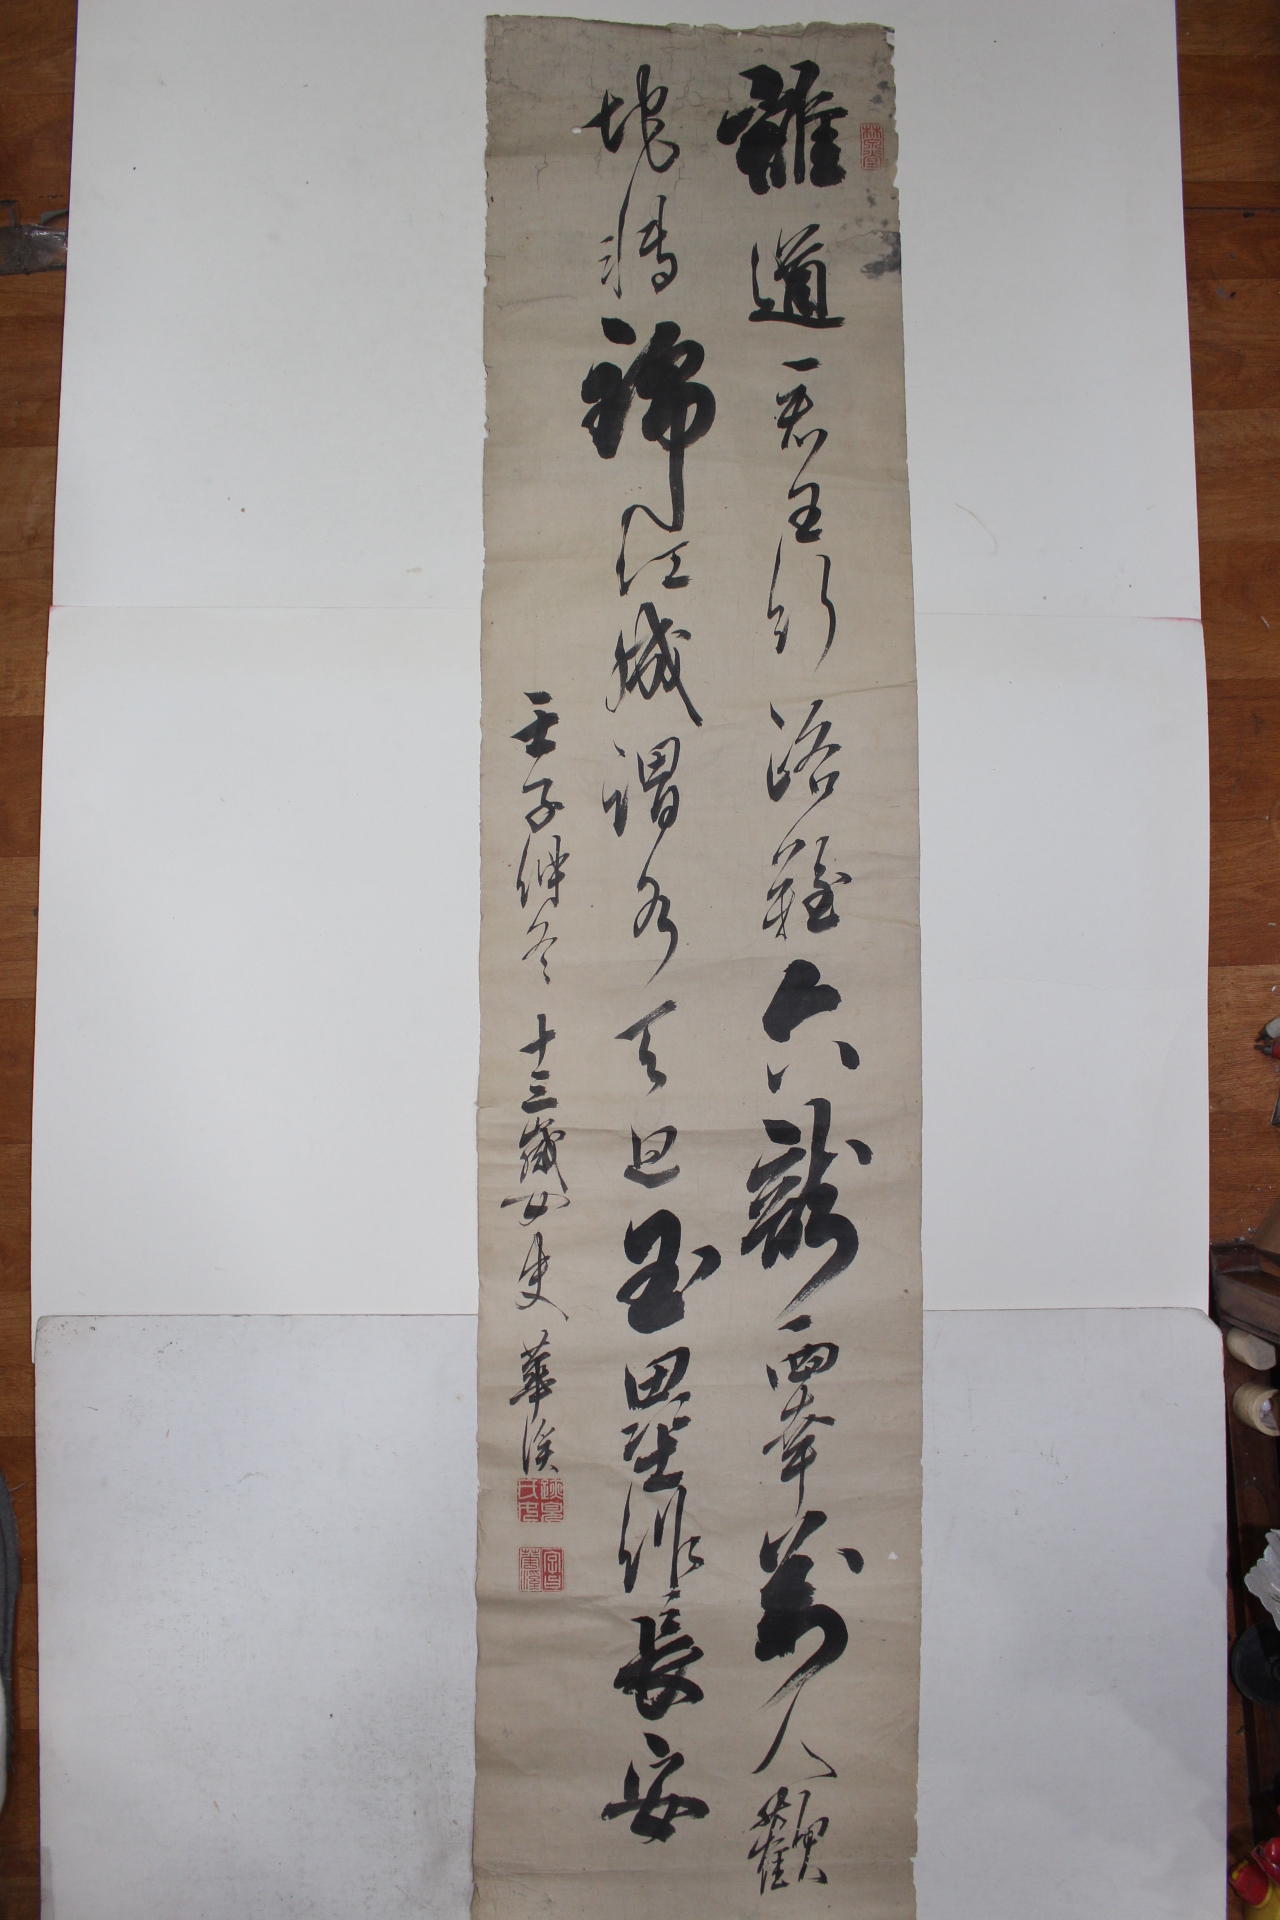 誰道君王行路難六龍西幸萬人歡
地轉錦江成渭水天迴玉壘作長安
壬子仲冬 十三歲女史 華溪